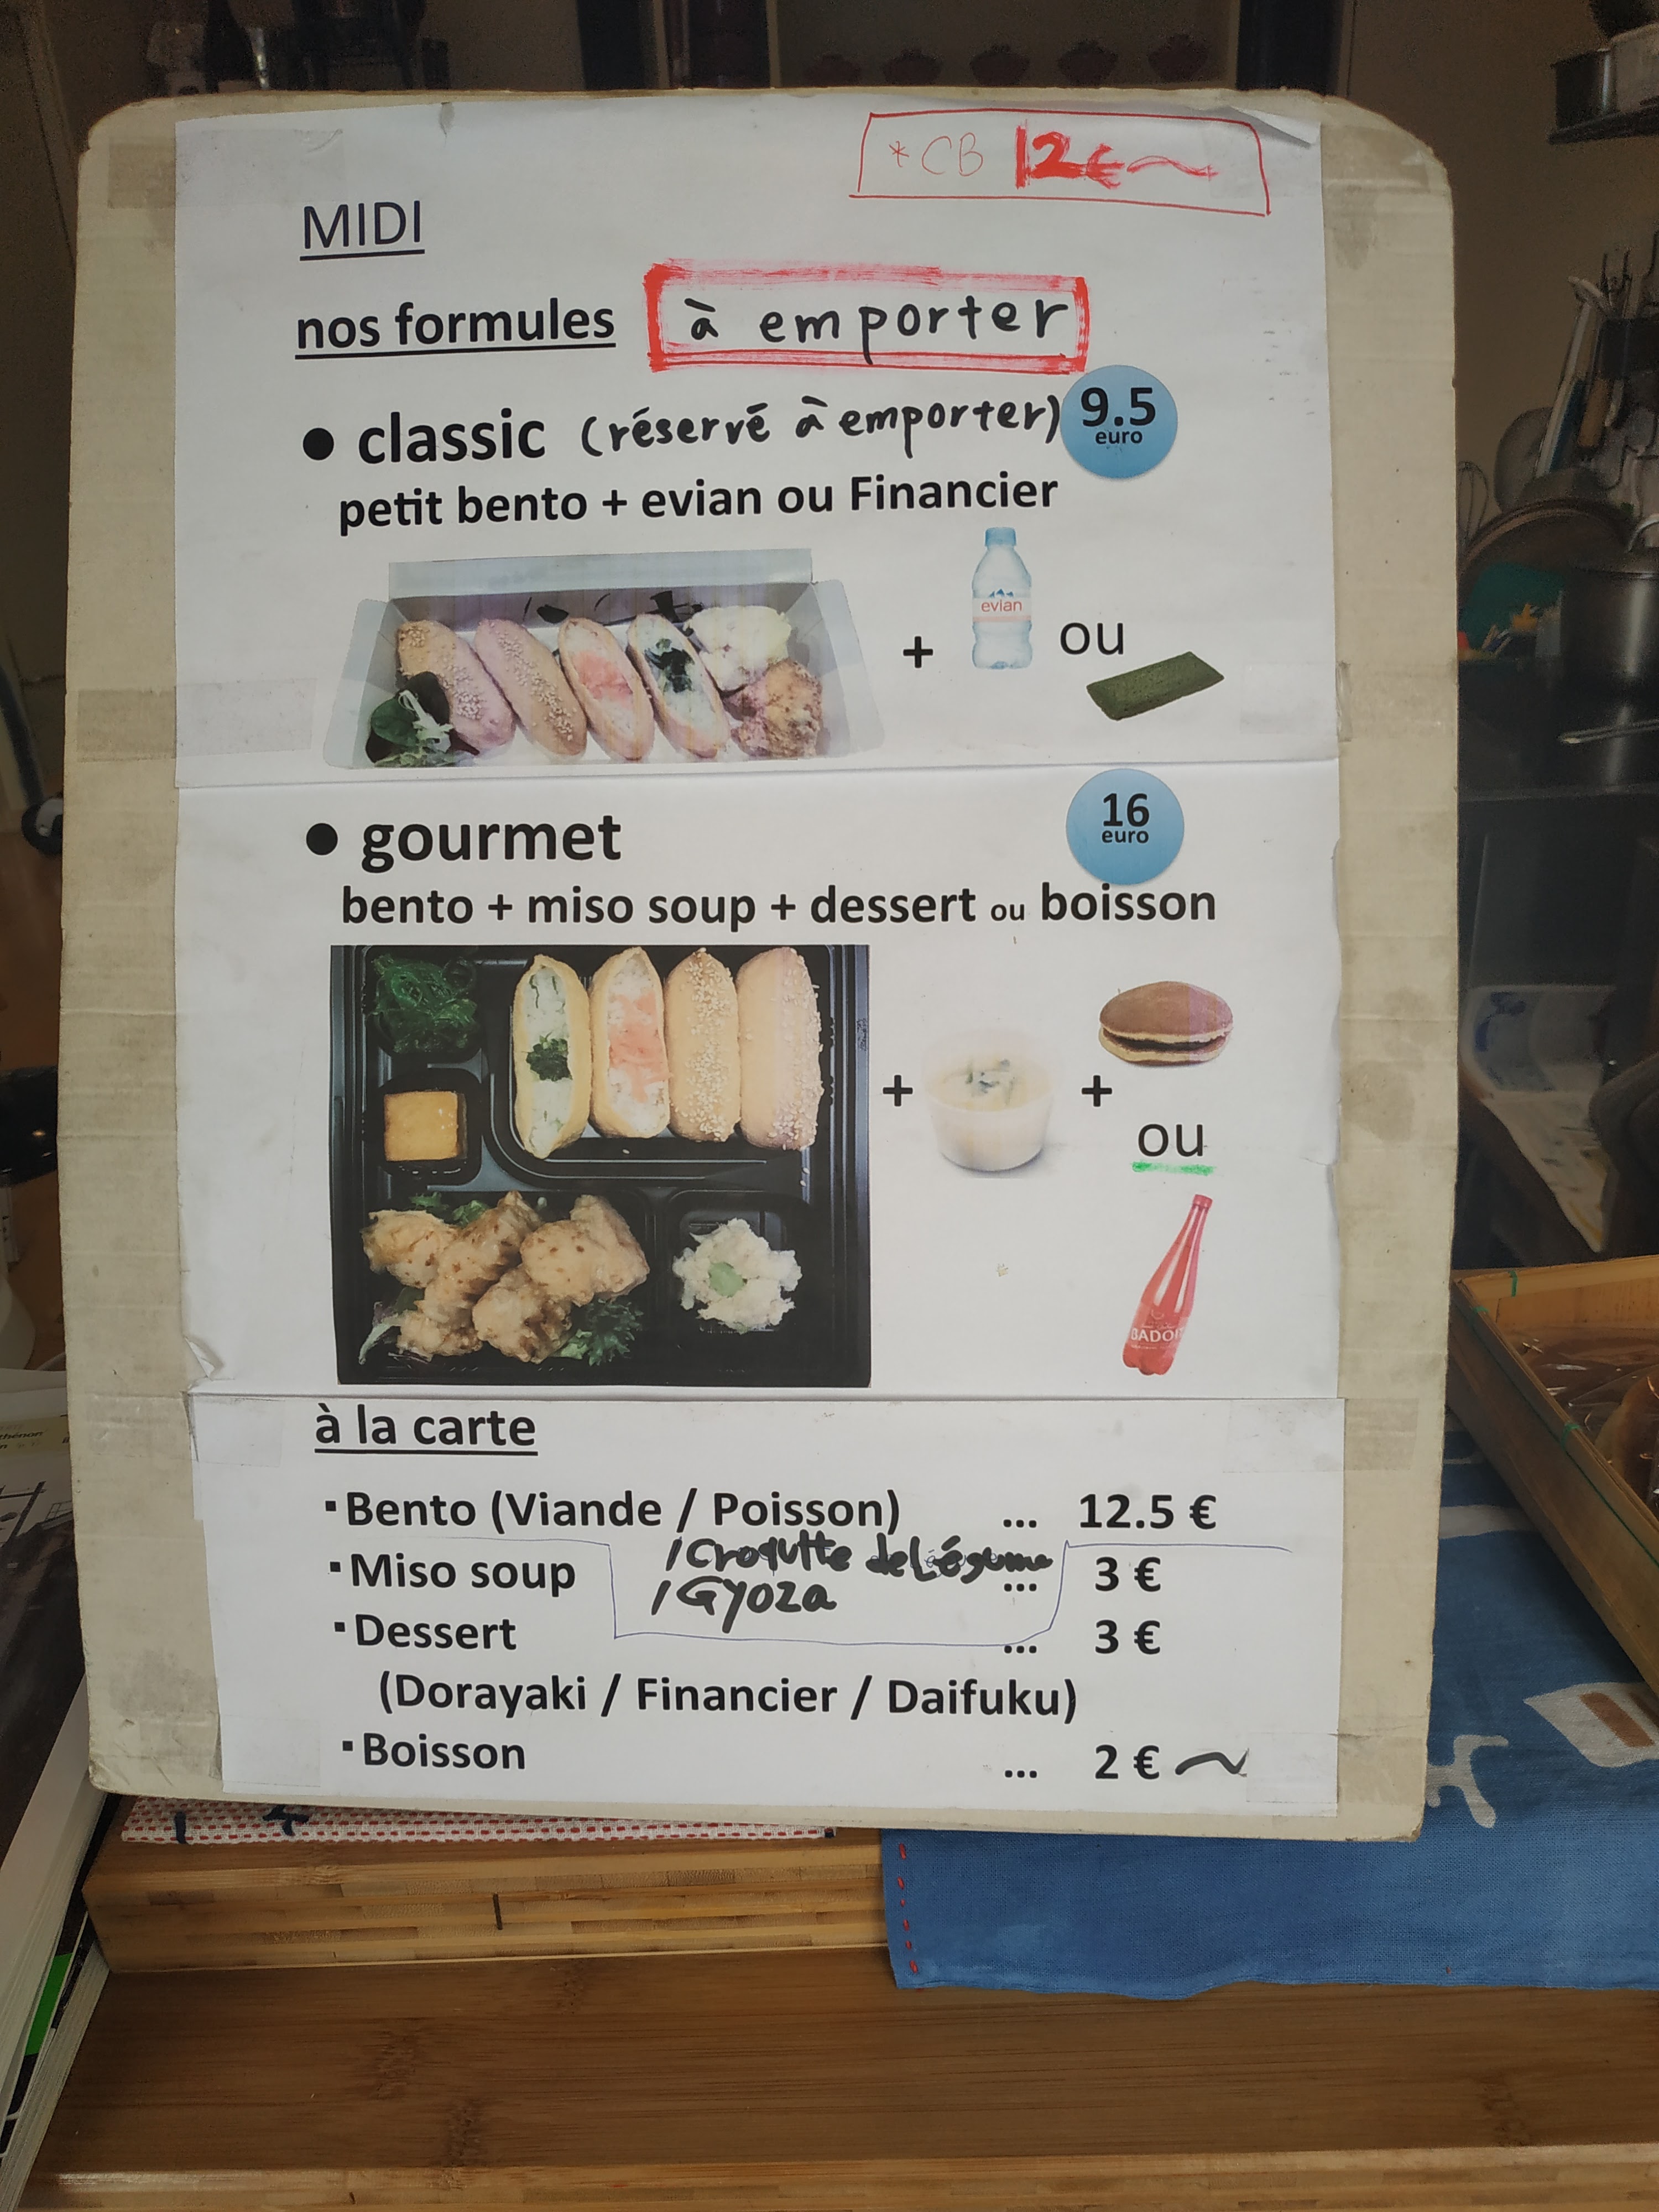 *CB 12€~
MIDI
nos formules à emporter
● classic (réservé à emporter) 9.5 euro
petit bento + evian ou Financier
+ evian ou
● gourmet 16 euro
bento + miso soup + dessert ou boisson
+ +
ou
BADOIT
à la carte
▪Bento (Viande / Poisson) ... 12.5 €
/Croqutte de Légume
▪Miso soup ... 3 €
/Gyoza
▪Dessert ... 3 €
(Dorayaki / Financier / Daifuku)
▪Boisson ... 2 €~